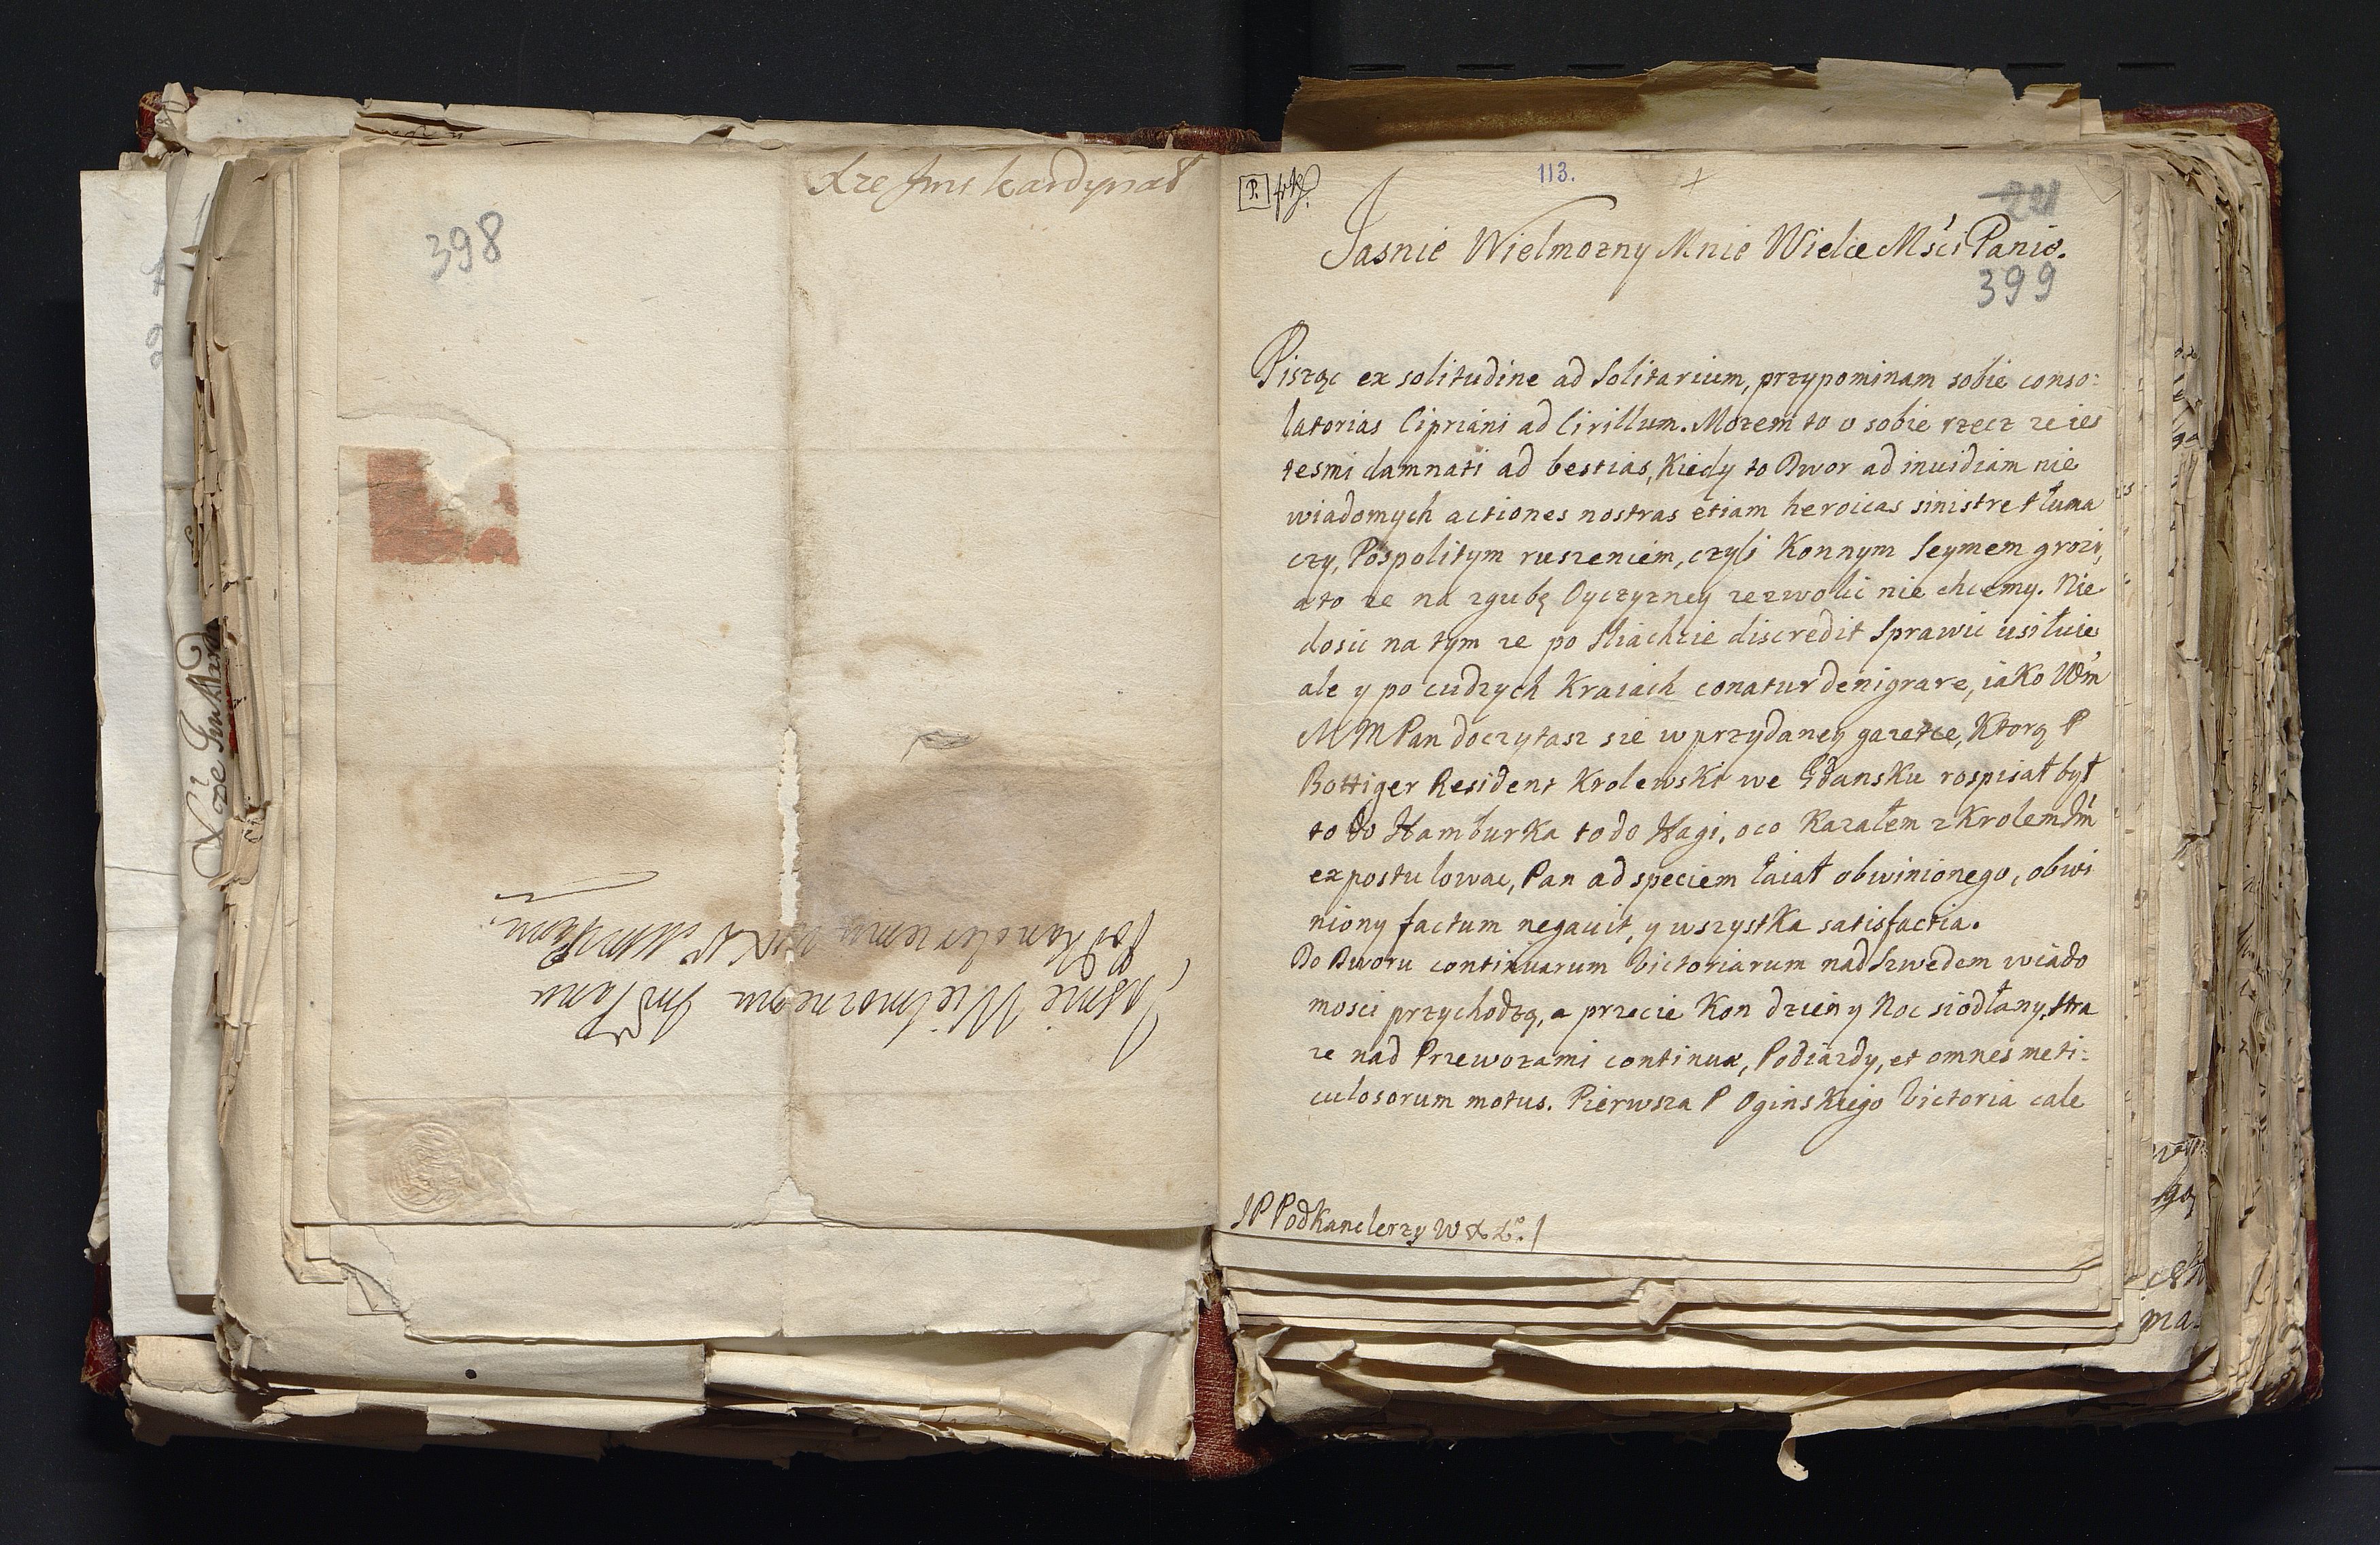 Xże Jmć kardynał
398
Jasnie Wielmoznemu Jmć Panu
Podkanclerzemu WXL MMPanu
Xże Jmć
113.
221
Jasnie Wielmozny Mnie Wielce Mści Panie.
399
Pisząc ex solitudine ad Solitarium, przypominam sobie conso=
latorias Cipriani ad Cirillum. Mozem to o sobie rzecz ze ies
tesmi damnati ad bestias, Kiedy to Dwor ad inuidiam nie
wiadomych actiones nostras etiam heroicas sinistre tłuma
czy, Pospolitym ruszeniem, czyli Konnym Seymem grozi,
a to ze na zgubę Oyczyzney zezwolic nie chcemy. Nie
dosic na tym ze po Sliachcie discredit Sprawic usiłuie,
ale y po cudzych Kraiach conatur denigrare, iako Wm
MMPan doczytasz sie w przydaney gazetce, Ktorą P
Bottiger Resident Krolewski we Gdansku rospisał był
to do Hamburka to do Hagi, o co Kazałem z Krolem Jm
expostulowac, Pan ad speciem łaiał obwinionego, obwi
niony factum negauit, y wszystka satisfactia.
Do Dworu continuarum victoriarum nad Szwedem wiado
mosci przychodzą, a przecie Kon dzien y Noc siodłany, Stra
ze nad Przewozami continuæ, Podiazdy, et omnes meti=
culosorum motus. Pierwsza P Oginskiego Victoria cale
JP Podkanclerzy W X L.